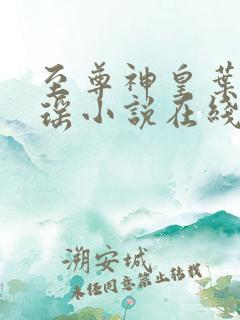 至尊神皇葉
瑶小說在綫
溯安城
未经同意禁止转载